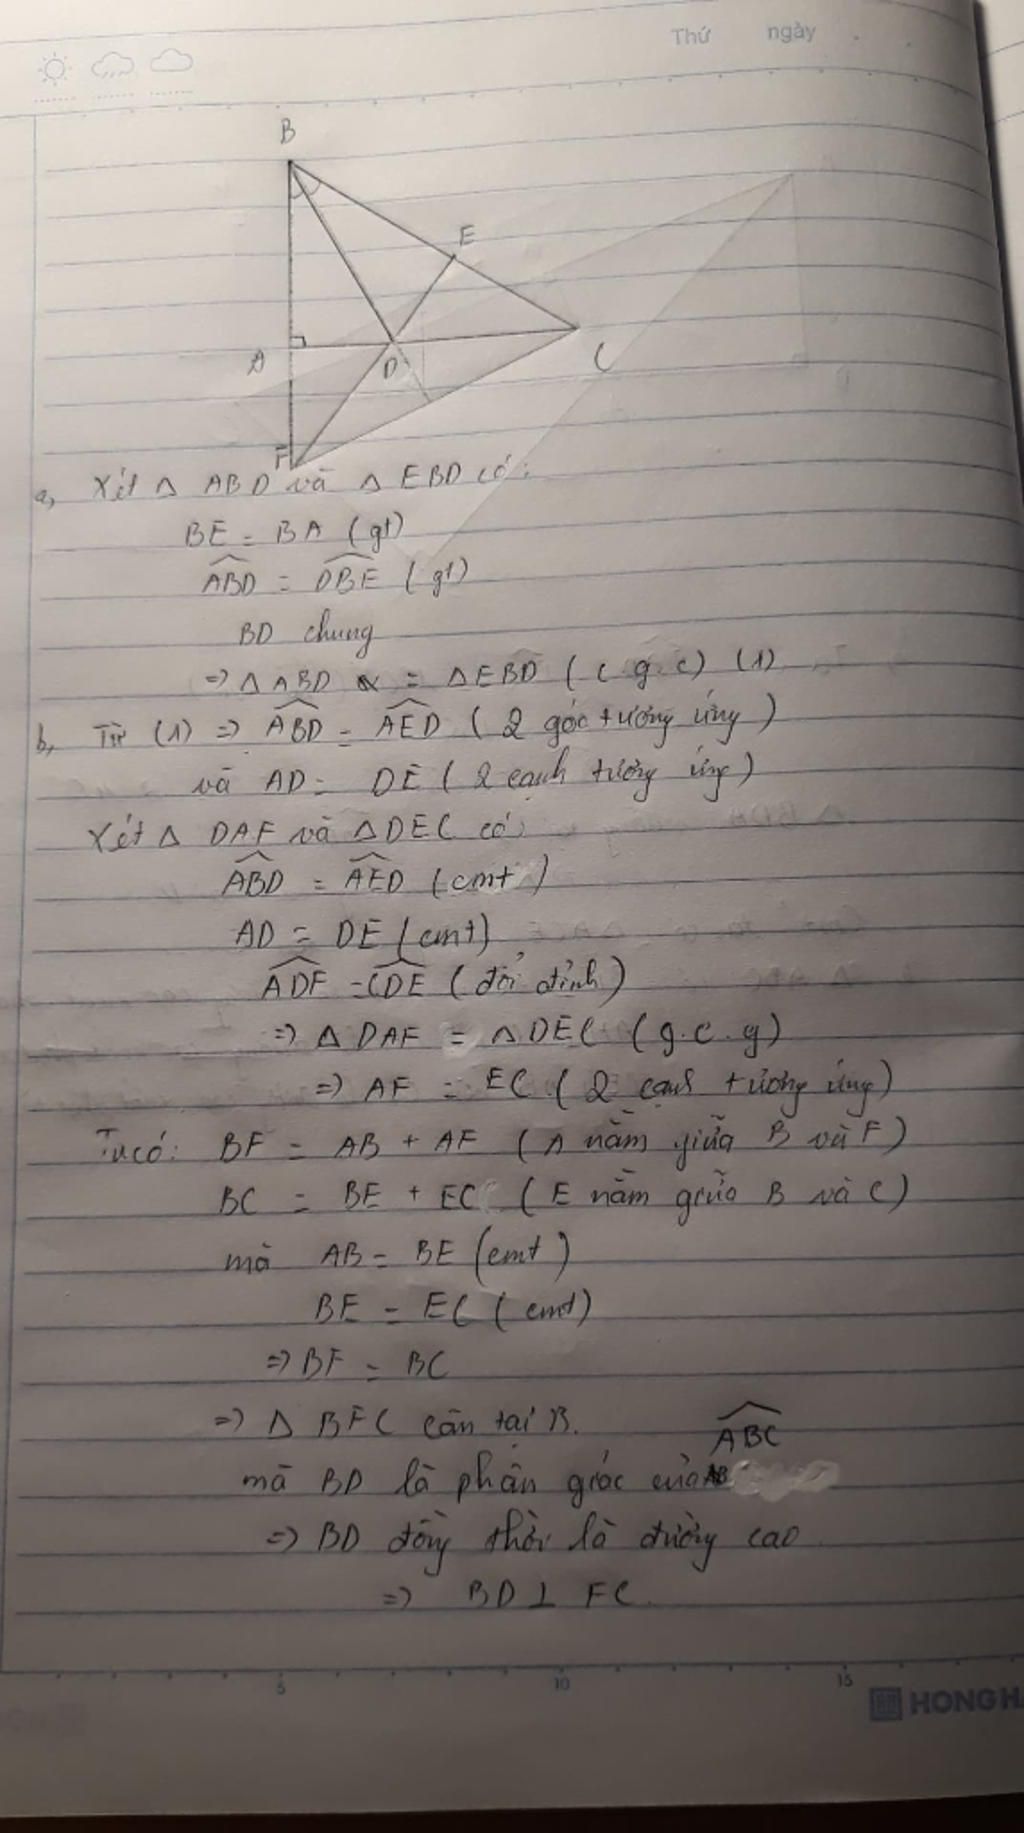 Thứ ngày
B
E
A
D
C
F
a, Xét Δ ABD và Δ EBD có:
BE = BA (gt)
\widehat{ABD} = \widehat{DBE} (gt)
BD chung
=> Δ ABD = Δ EBD (c g.c) (1)
b, Từ (1) => \widehat{ABD} = \widehat{AED} (2 góc tương ứng)
và AD = DE (2 cạnh tương ứng)
Xét Δ DAF và Δ DEC có
\widehat{ABD} = \widehat{AED} (cmt)
AD = DE (cmt)
\widehat{ADF} = \widehat{CDE} (đối đỉnh)
=> Δ DAF = Δ DEC (g.c.g)
=> AF = EC (2 cạnh tương ứng)
Ta có: BF = AB + AF (A nằm giữa B và F)
BC = BE + EC (E nằm giữa B và C)
mà AB = BE (cmt)
BE = EC (cmt)
=> BF = BC
=> Δ BFC cân tại B.
\widehat{ABC}
mà BD là phân giác của
=> BD đồng thời là đường cao
=> BD ⊥ FC.
5 10 15
HONG H